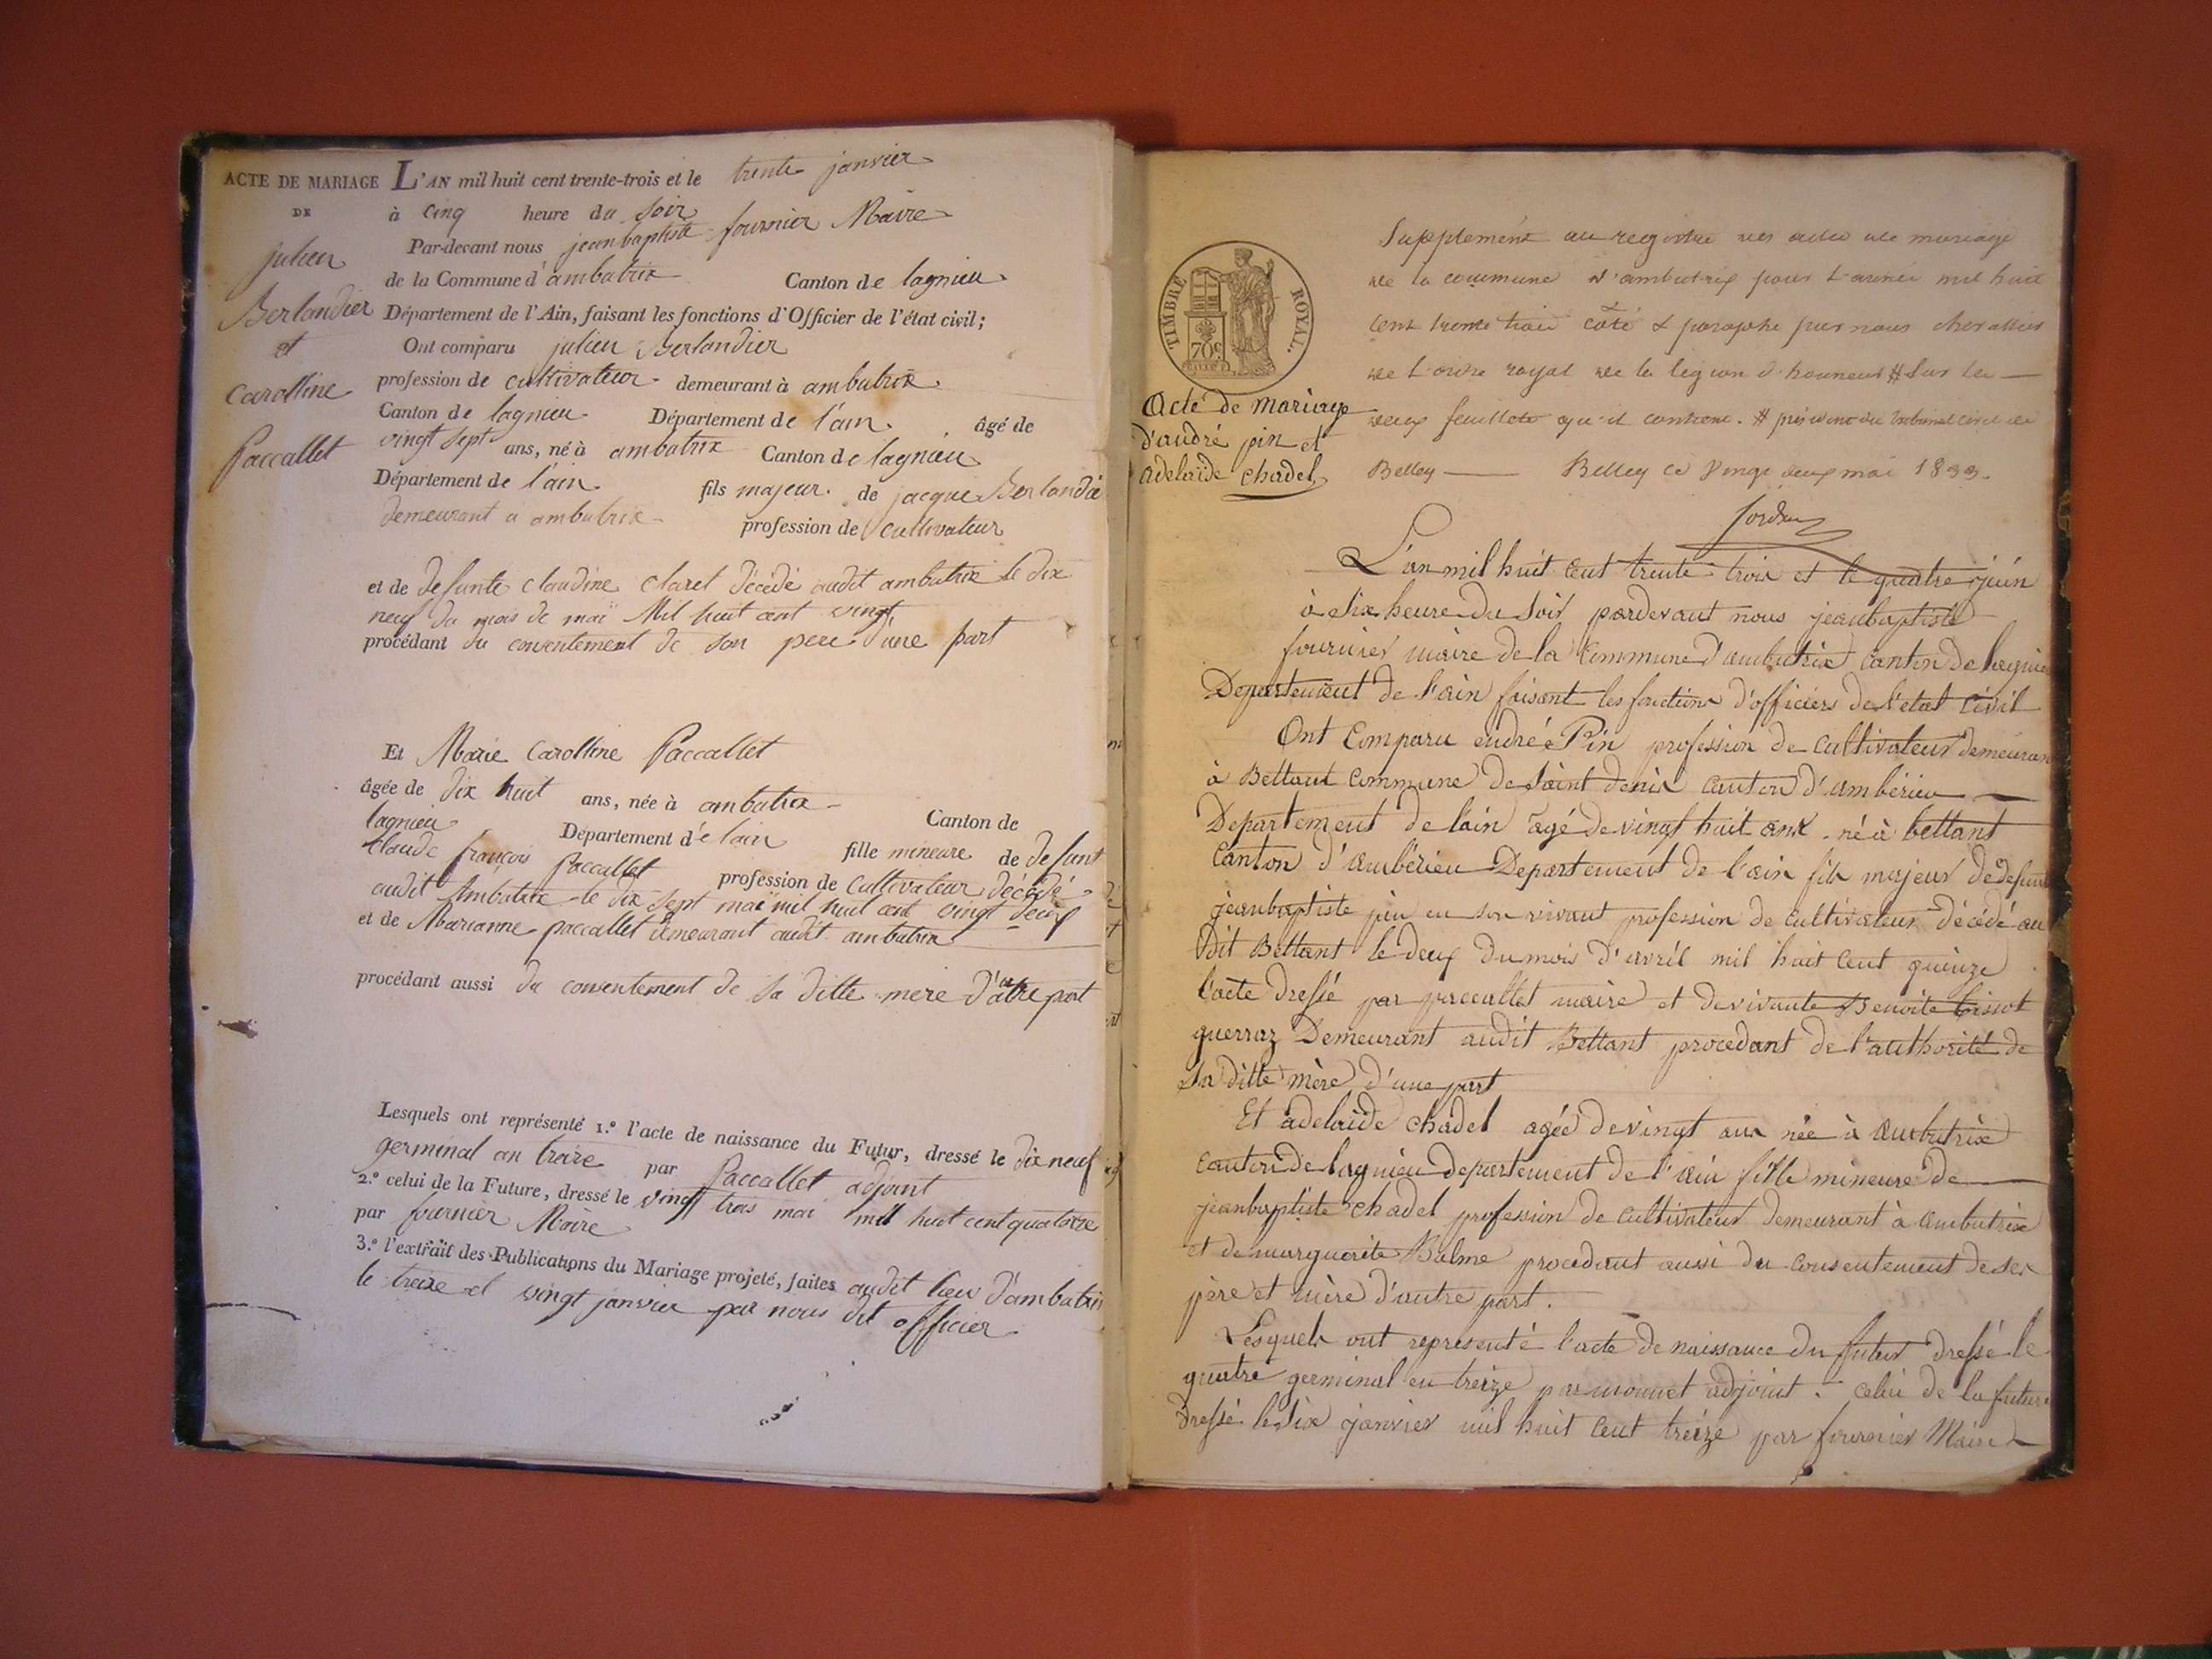 ACTE DE MARIAGE
DE
julien
Berlandier
et
Carolline
Paccallet
L'AN mil huit cent trente-trois et le trente janvier
à cinq heure du soir
Par-devant nous jeanbaptiste fournier Maire
de la Commune d'ambutrix Canton de lagnieu
Département de l'Ain, faisant les fonctions d'Officier de l'état civil;
Ont comparu julien Berlandier
profession de cultivateur demeurant à ambutrix
Canton de lagnieu Département de l'ain âgé de
vingt sept ans, né à ambutrix Canton de lagnieu
Département de l'ain fils majeur de jacque Berlandié
demeurant a ambutrix profession de cultivateur
et de defunte claudine clarel décédé audit ambutrix le dix
neuf du mois de mai Mil huit cent vingt
procédant du consentement de son pere d'une part
Et Marie Carolline Paccallet
âgée de dix huit ans, née à ambutrix Canton de
lagnieu Département de lain fille mineure de defunt
claude françois paccallet profession de cultivateur décédé
audit Ambutrix le dix sept mai mil huit cent vingt deux
et de Marianne paccallet demeurant audit ambutrix
procédant aussi du consentement de sa ditte mere d'autre part
Lesquels ont représenté 1.º l'acte de naissance du Futur, dressé le dix neuf
germinal an treize par Paccallet adjoint
2.º celui de la Future, dressé le vingt trois mai mil huit cent quatorze
par fournier Maire
3.º l'extrait des Publications du Mariage projeté, faites audit lieu d'ambutrix
le treize et vingt janvier par nous dit officier
TIMBRE ROYAL.
70c
Supplément au registre des actes de mariage
de la commune d'ambutrix pour l'année mil huit
cent trente trois coté & paraphé par nous chevallier
de l'ordre royal de la légion d'honneur # sur les
deux feuillets qu'il contient. # président du tribunal civil de
Belley Belley ce vingt deux mai 1833.
Acte de mariage
d'andré pin et
adelaïde chadel
L'an mil huit cent trente trois et le quatre juin
à six heure du soir pardevant nous jeanbaptiste
fournier maire de la Commune d'ambutrix canton de lagnieu
Departement de l'ain faisant les fonctions d'officiers de l'etat Civil
Ont Comparu andré Pin profession de Cultivateur demeurant
à Bettant Commune de Saint denis canton d'ambérieu
Departement de lain agé de vingt huit ans né à bettant
Canton d'ambérieu Departement de l'ain fils majeur de defunt
jeanbaptiste pin en son vivant profession de Cultivateur décédé au
dit Bettant le deux du mois d'avril mil huit cent quinze
l'acte dressé par paccallet maire et de vivante Benoite
guerraz Demeurant audit Bettant procedant de l'authorité de
sa ditte mère d'une part
Et adelaïde chadel agée de vingt ans née à ambutrix
canton de lagnieu departement de l'ain fille mineure de
jeanbaptiste chadel profession de cultivateur demeurant à ambutrix
et de marguerite Balme procedant aussi du consentement de ses
père et mère d'autre part.
Lesquels ont representé l'acte de naissance du futur dressé le
quatre germinal an treize par monnet adjoint. celui de la future
dressé le six janvier mil huit cent treize par fournier Maire